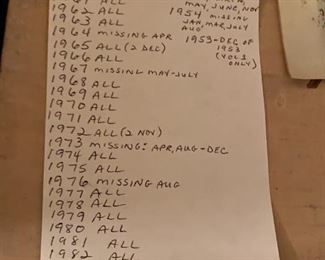 ALL
1962 ALL
1963 ALL
1964 MISSING APR
1965 ALL (2 DEC)
1966 ALL
1967 MISSING MAY-JULY
1968 ALL
1969 ALL
1970 ALL
1971 ALL
1972 ALL (2 NOV)
1973 MISSING: APR, AUG-DEC
1974 ALL
1975 ALL
1976 MISSING AUG
1977 ALL
1978 ALL
1979 ALL
1980 ALL
1981 ALL
1982 ALL
MAY, JUNE, NOV
1954 MISSING
JAN, MAR, JULY
AUG
1953-DEC OF
1953
(VOL 1
ONLY)